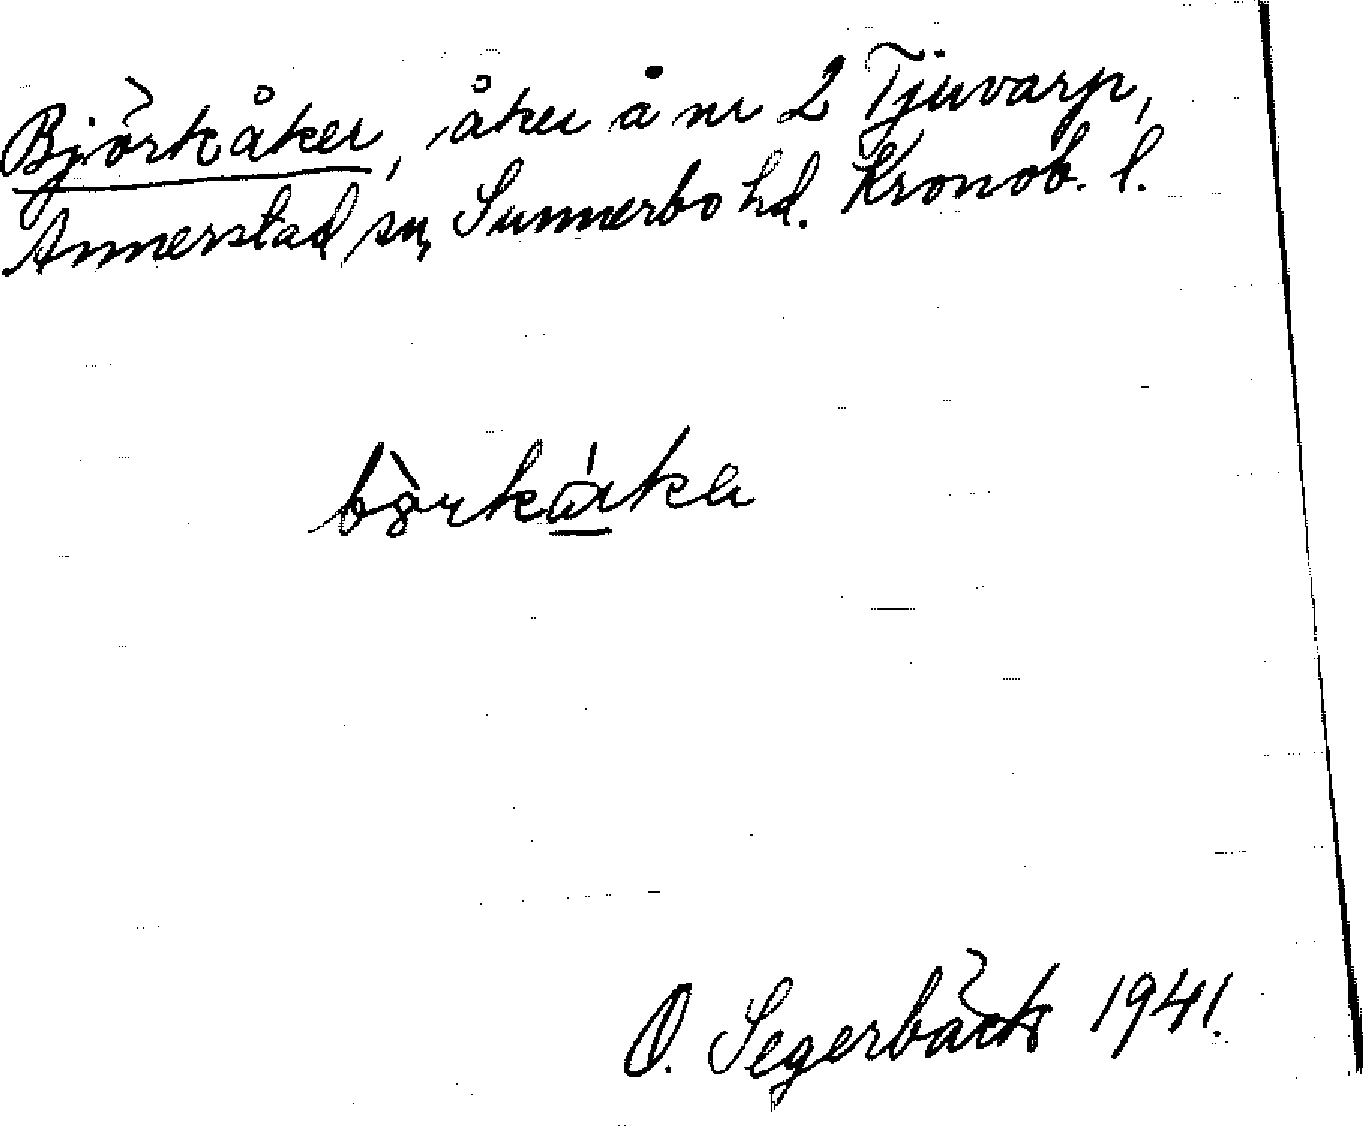 Björkåker, åker å nr 2 Tjuvarp,
Annerstad sn, Sunnerbo hd. Kronob. l.
O. Segerbäck 1941.